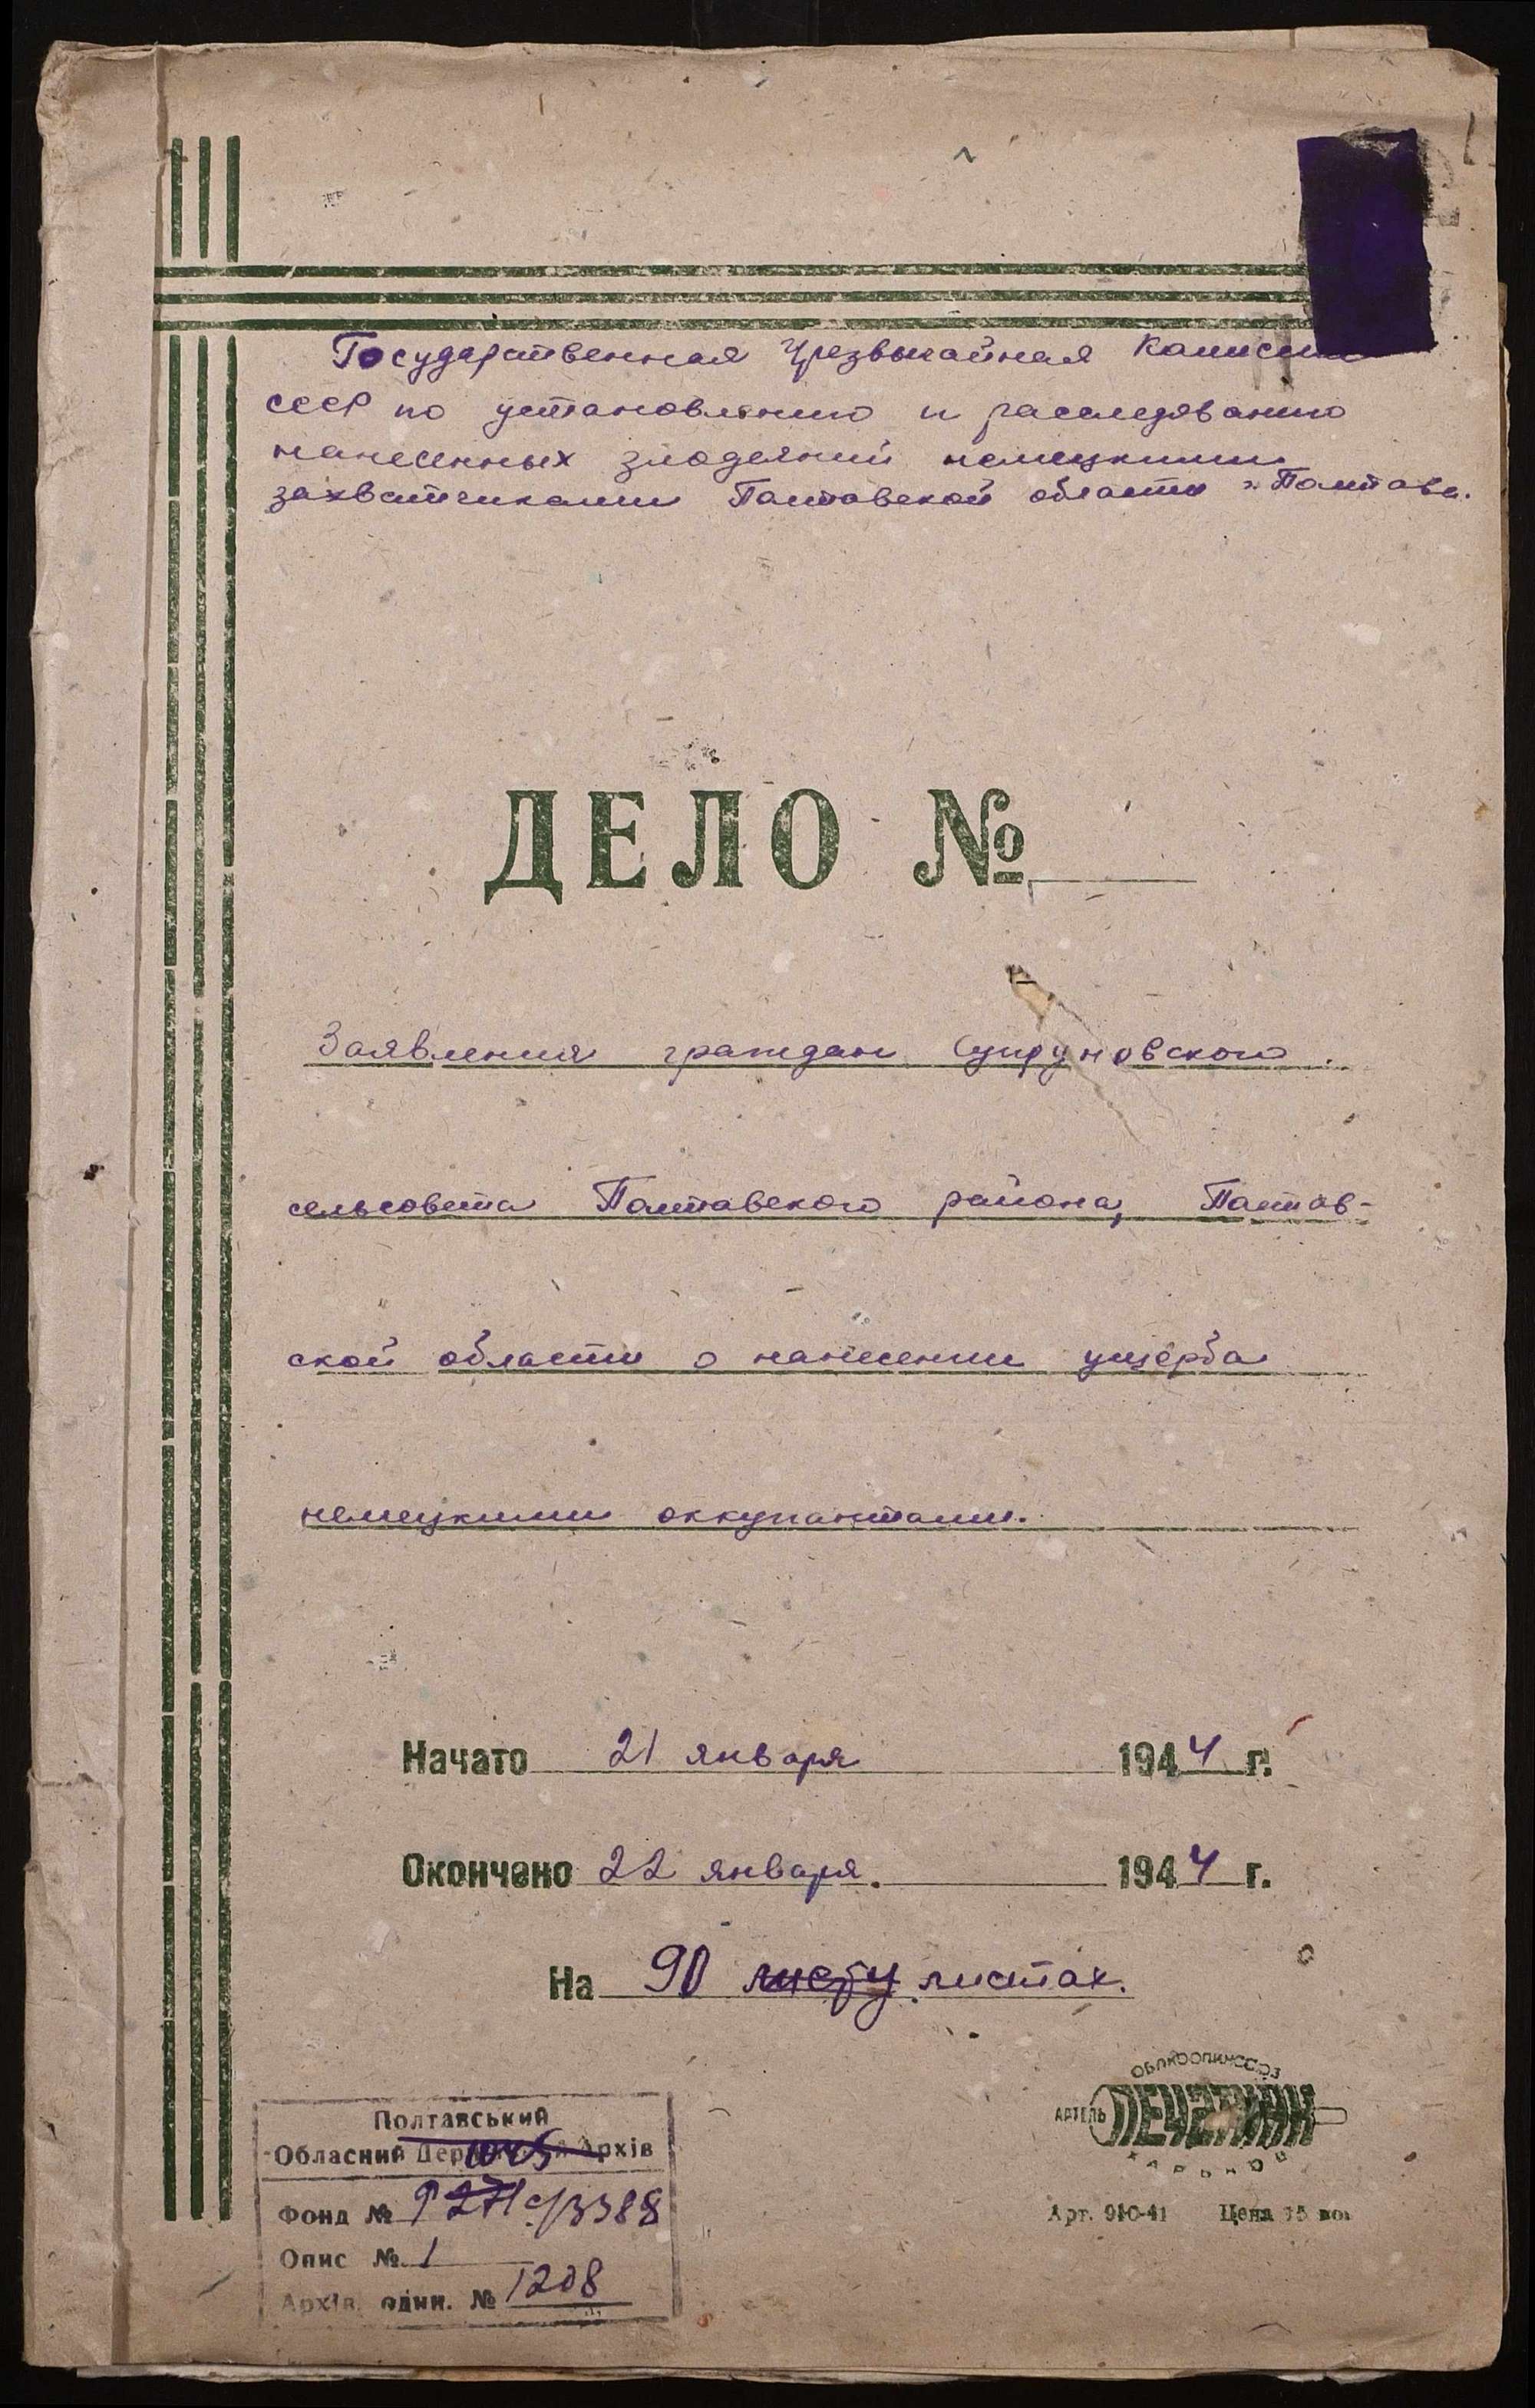 Государственная Чрезвычайная Комиссия
СССР по установлению и расследованию
нанесенных злодеяний немецкими
захватчиками Полтавской области г. Полтава.
ДЕЛО №
Заявления граждан Супруновского
сельсовета Полтавского района, Полтав-
ской области о нанесении ущерба
немецкими оккупантами.
Начато 21 января 1944 г.
Окончено 22 января. 1944 г.
На 90 листу листах.
Полтавський
Обласний Архів
Фонд № 3388
Опис № 1
Архів. один. № 1208
АРТЕЛЬ
ПЕЧАТНИК
ХАРЬКОВ
Арт. 910-41 Цена 15 коп